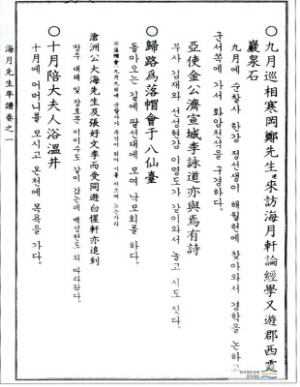 ○九月巡相寒岡鄭先生逑來訪海月軒論經學又遊郡西靈
巖泉石
九月에 순찰사 한강 정선생이 해월헌에 찾아와서 경학을 논하고
군서쪽에 가서 화암천석을 구경하다.
亞使金公濟宣城李詠道亦與焉有詩
부사 김재와 선성현감 이영도가 같이와서 놀고 시도 짓다.
○歸路爲落帽會于八仙臺
돌아오는 길에 팔선대에 모여 낙모회를 하다.
滄洲公大海先生及張好文李而受同遊白惺軒亦追到
○十月陪大夫人浴溫井
十月에 어머니를 모시고 온천에 목욕을 가다.
海月先生年譜卷之一